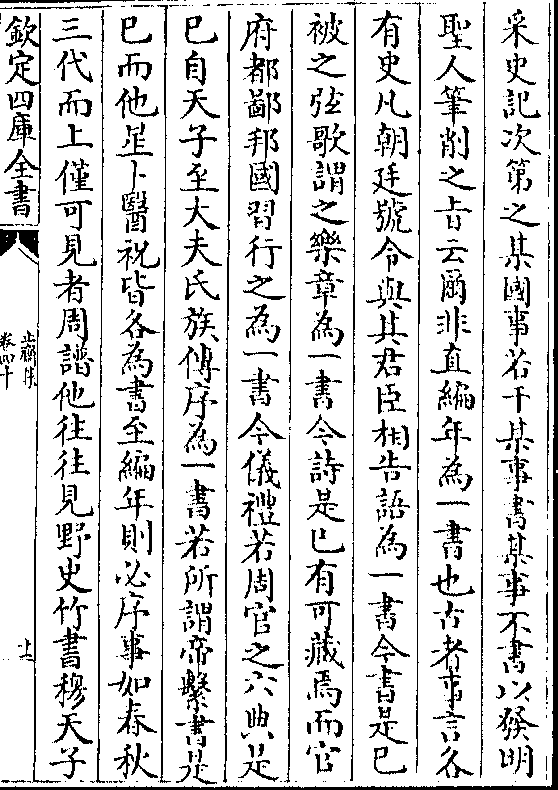 采史記次第之某國事若干某事書某事不書以發明
聖人筆削之㫖云爾非直編年為一書也古者事言各
有史凡朝廷號令與其君臣相告語為一書今書是已
被之弦歌謂之樂章為一書今詩是已有可藏焉而官
府都鄙邦國習行之為一書今儀禮若周官之六典是
已自天子至大夫氏族傳序為一書若所謂帝繫書是
已而他星卜醫祝皆各為書至編年則必序事如春秋
三代而上僅可見者周譜他往往見野史竹書穆天子
欽定四庫全書
止齋集
卷四十